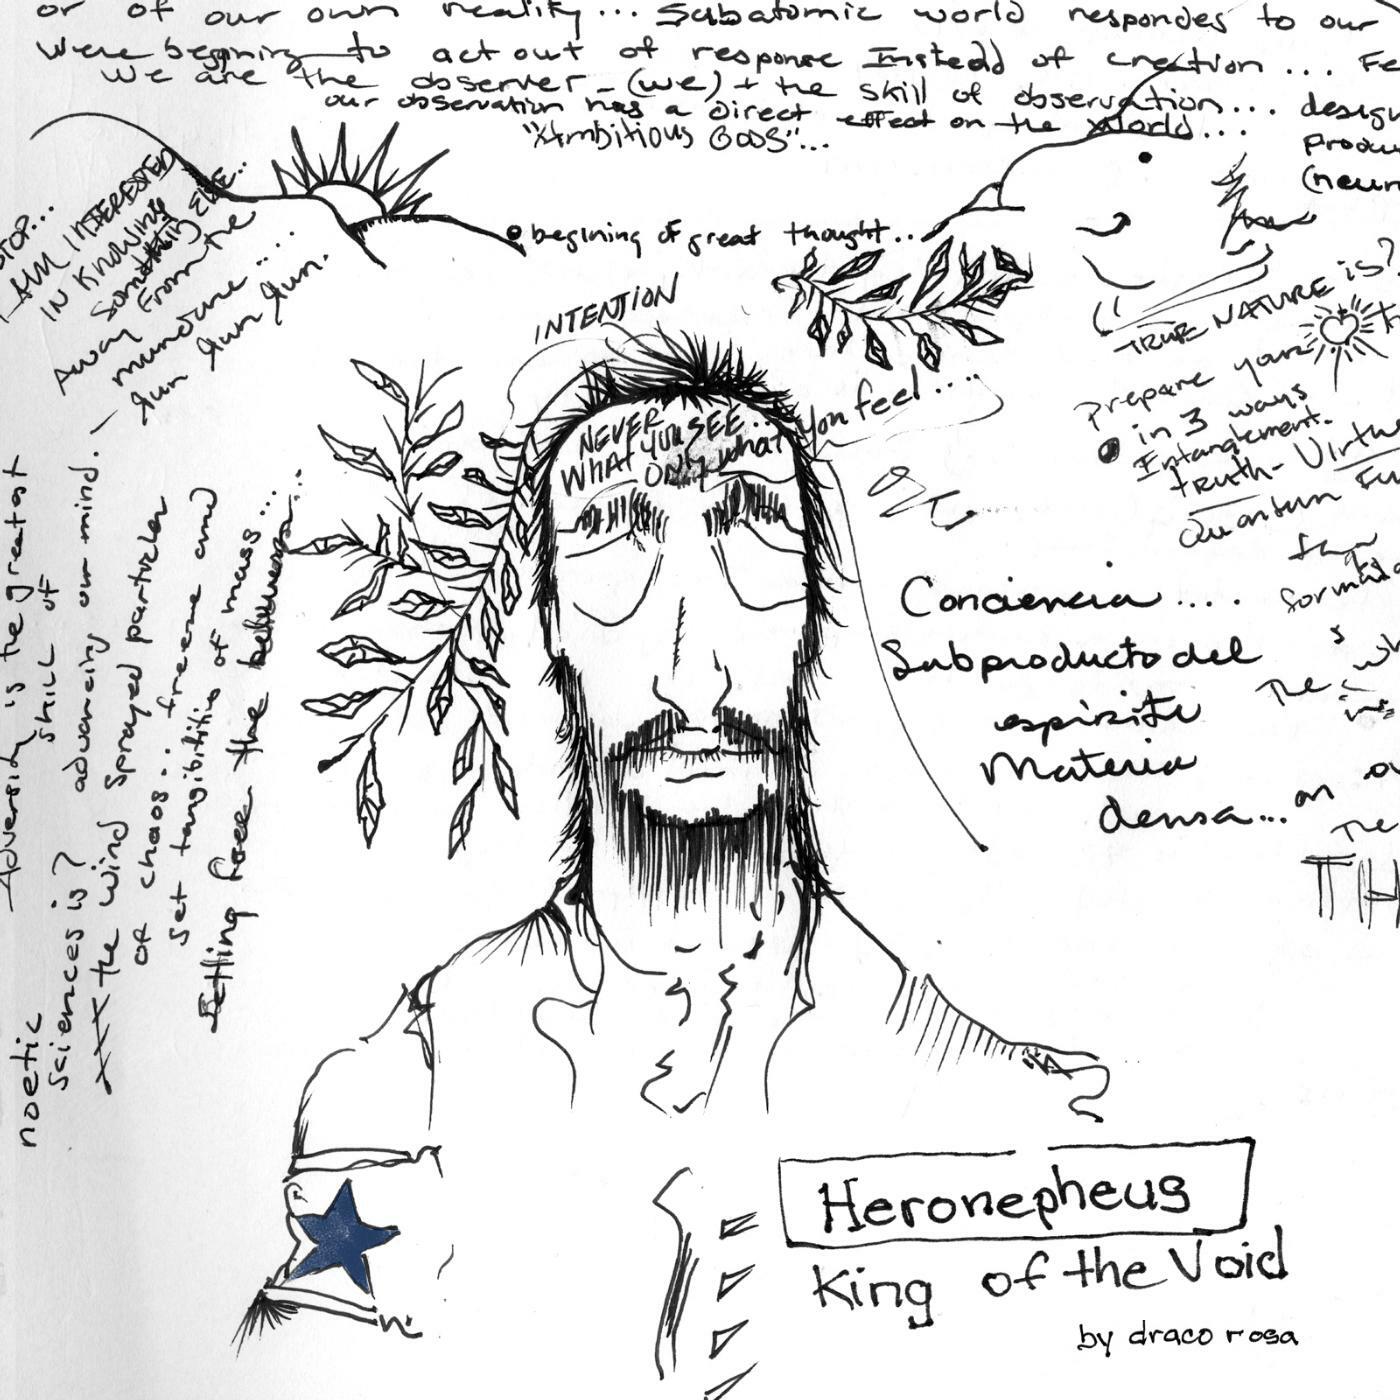 or of our own reality... Subatomic world respondes to our
were beginning to act out of response Instead of creation... Fe
we are the observer - (we) + the skill of observation... design
our observation has a direct effect on the world... produ
"Ambitious Gods"... (neur
STOP...
I AM INTERESTED
IN KNOWING
Something ELSE..
Away From the
mundane...
run run run.
• begining of great thought...
INTENTION
NEVER
WHAT YOU SEE..
ONLY what you feel....
TRUE NATURE is?
Prepare your
• in 3 ways
Entanglement.
truth - Virtue
Quantum Fu
Conciencia....
Subproducto del
espiritu
Materia
densa...
on
The
TH
Adversity is the greatest
skill of
advancing our mind.
noetic
sciences is?
XXX the wind sprayed particles
or chaos.. freeze and
set tangibilities of mass...
Setting free the
Heronepheus
King of the Void
by draco rosa